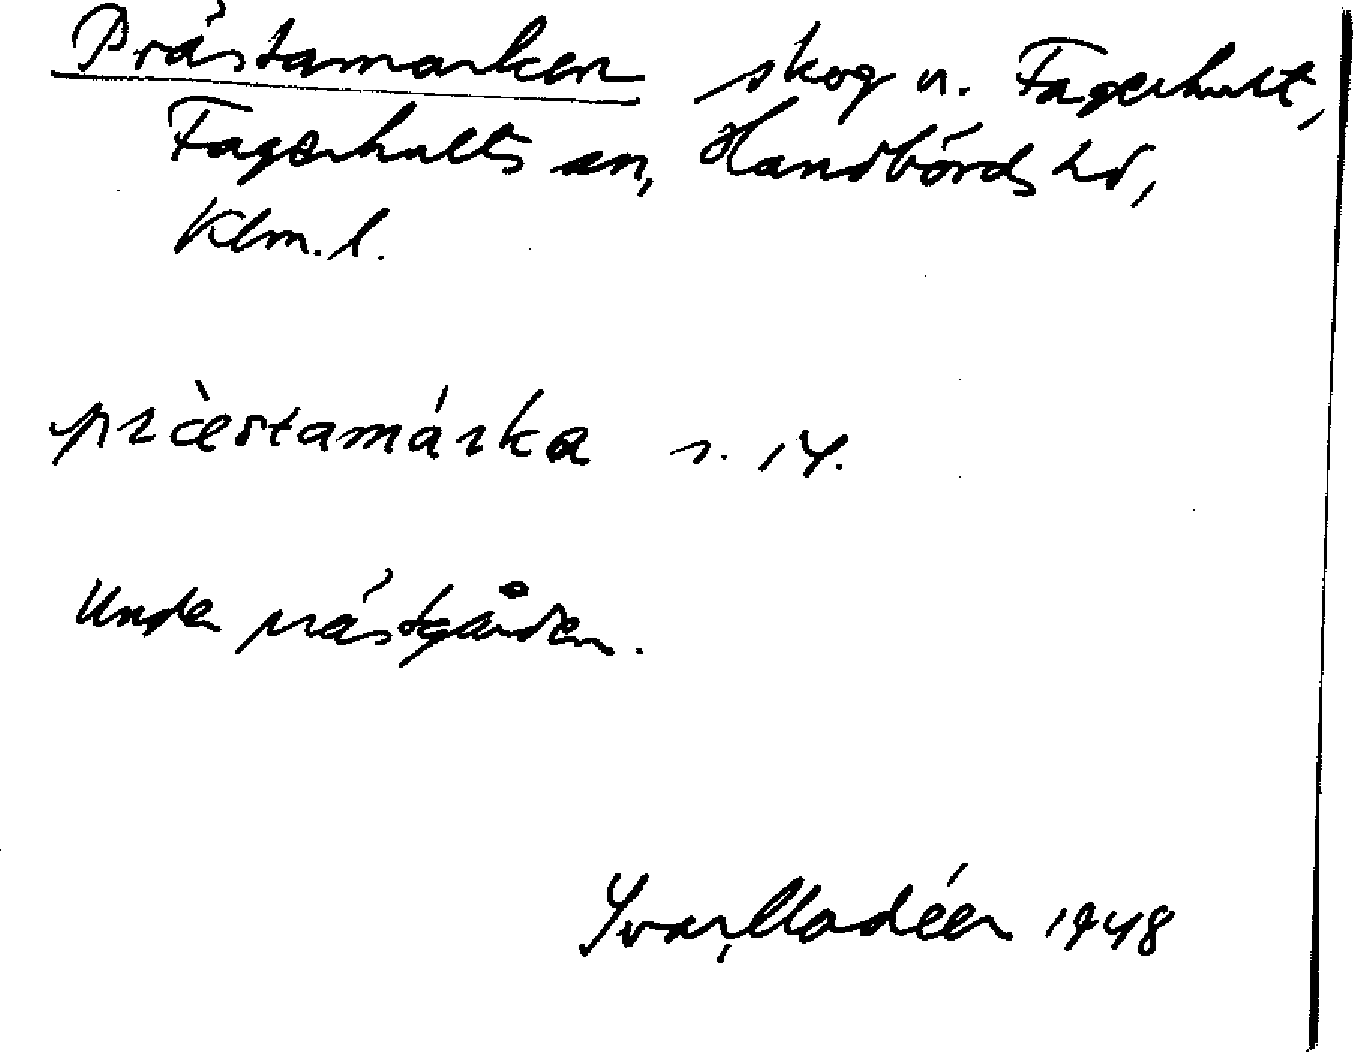 Prästamarken skog n. Fagerhult,
Fagerhults sn, Handbörds hd,
Klm. l.
præ̀stamárka s. 14.
Under prästgården.
Ivar Modéer 1948